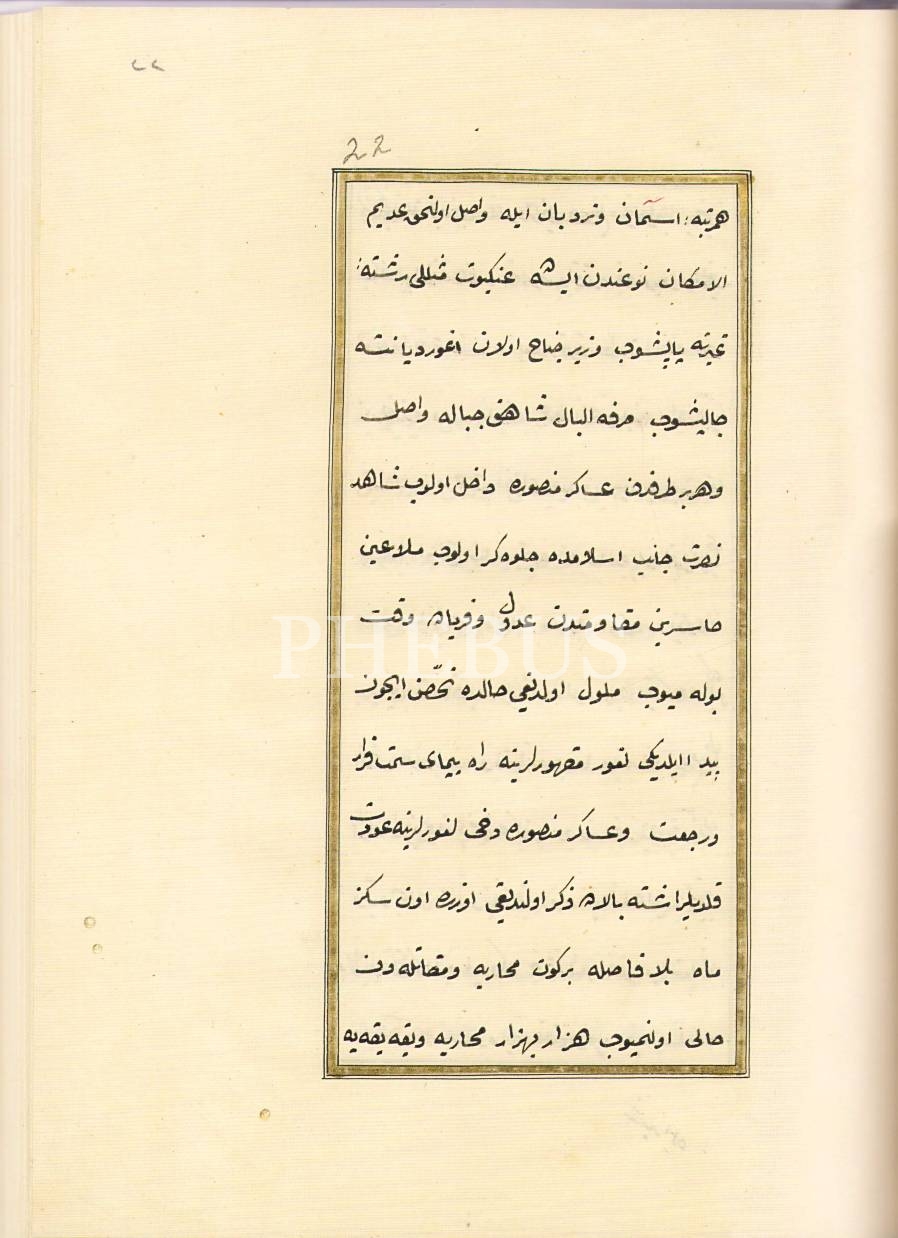 ٢٢
22
همرتبهٔ آسمان ونردبان ايله واصل اولنمق عديم
الامكان نوعندن ايشه عنكبوت مثللى رشتهٔ
غيرته ياپشوب وزير جناح اولان اغور ديانته
چاليشوب مرفه البال شاهق جباله واصل
وهر بر طرفدن عساكر منصوره داخل اولوب شاهد
نصرت جانب اسلامده جلوه كر اولوب ملاعين
خاسرين مقاومتدن عدول وفرياده وقت
بوله ميوب ملول اولديغى حالده تحصن ايچون
پيدا ايلديكى مقهورلرينه راه پيماى سمت فرار
ورجعت وعساكر منصوره دخى عودت
قلديلر اشته بالاده ذكر اولنديغى اوزره اون سكز
ماه بلا فاصله بركون محاربه ومقاتله دن
خالى اولنميوب هزار بهزار محاربه ويقه يقه يه
PHEBUS